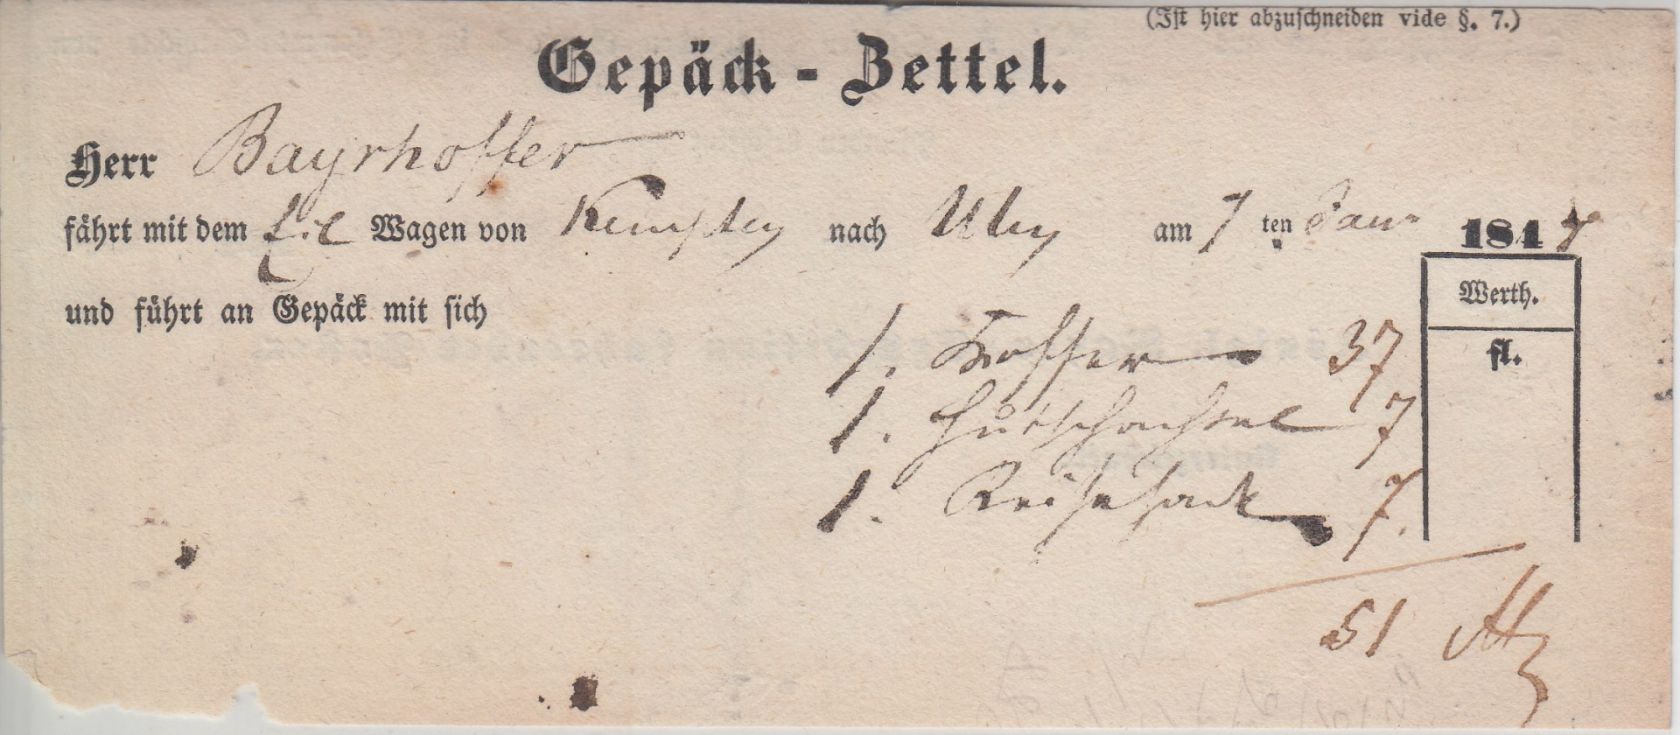 (Ist hier abzuschneiden vide §. 7.)
Gepäck - Zettel.
Herr Bayrhoffer
fährt mit dem Wagen von Kempten nach Ulm am 7 ten Jan 184
und führt an Gepäck mit sich
Werth.
fl.
1. Koffer 37
1. Hutschachtel 7
1. Reisesack 7.
51